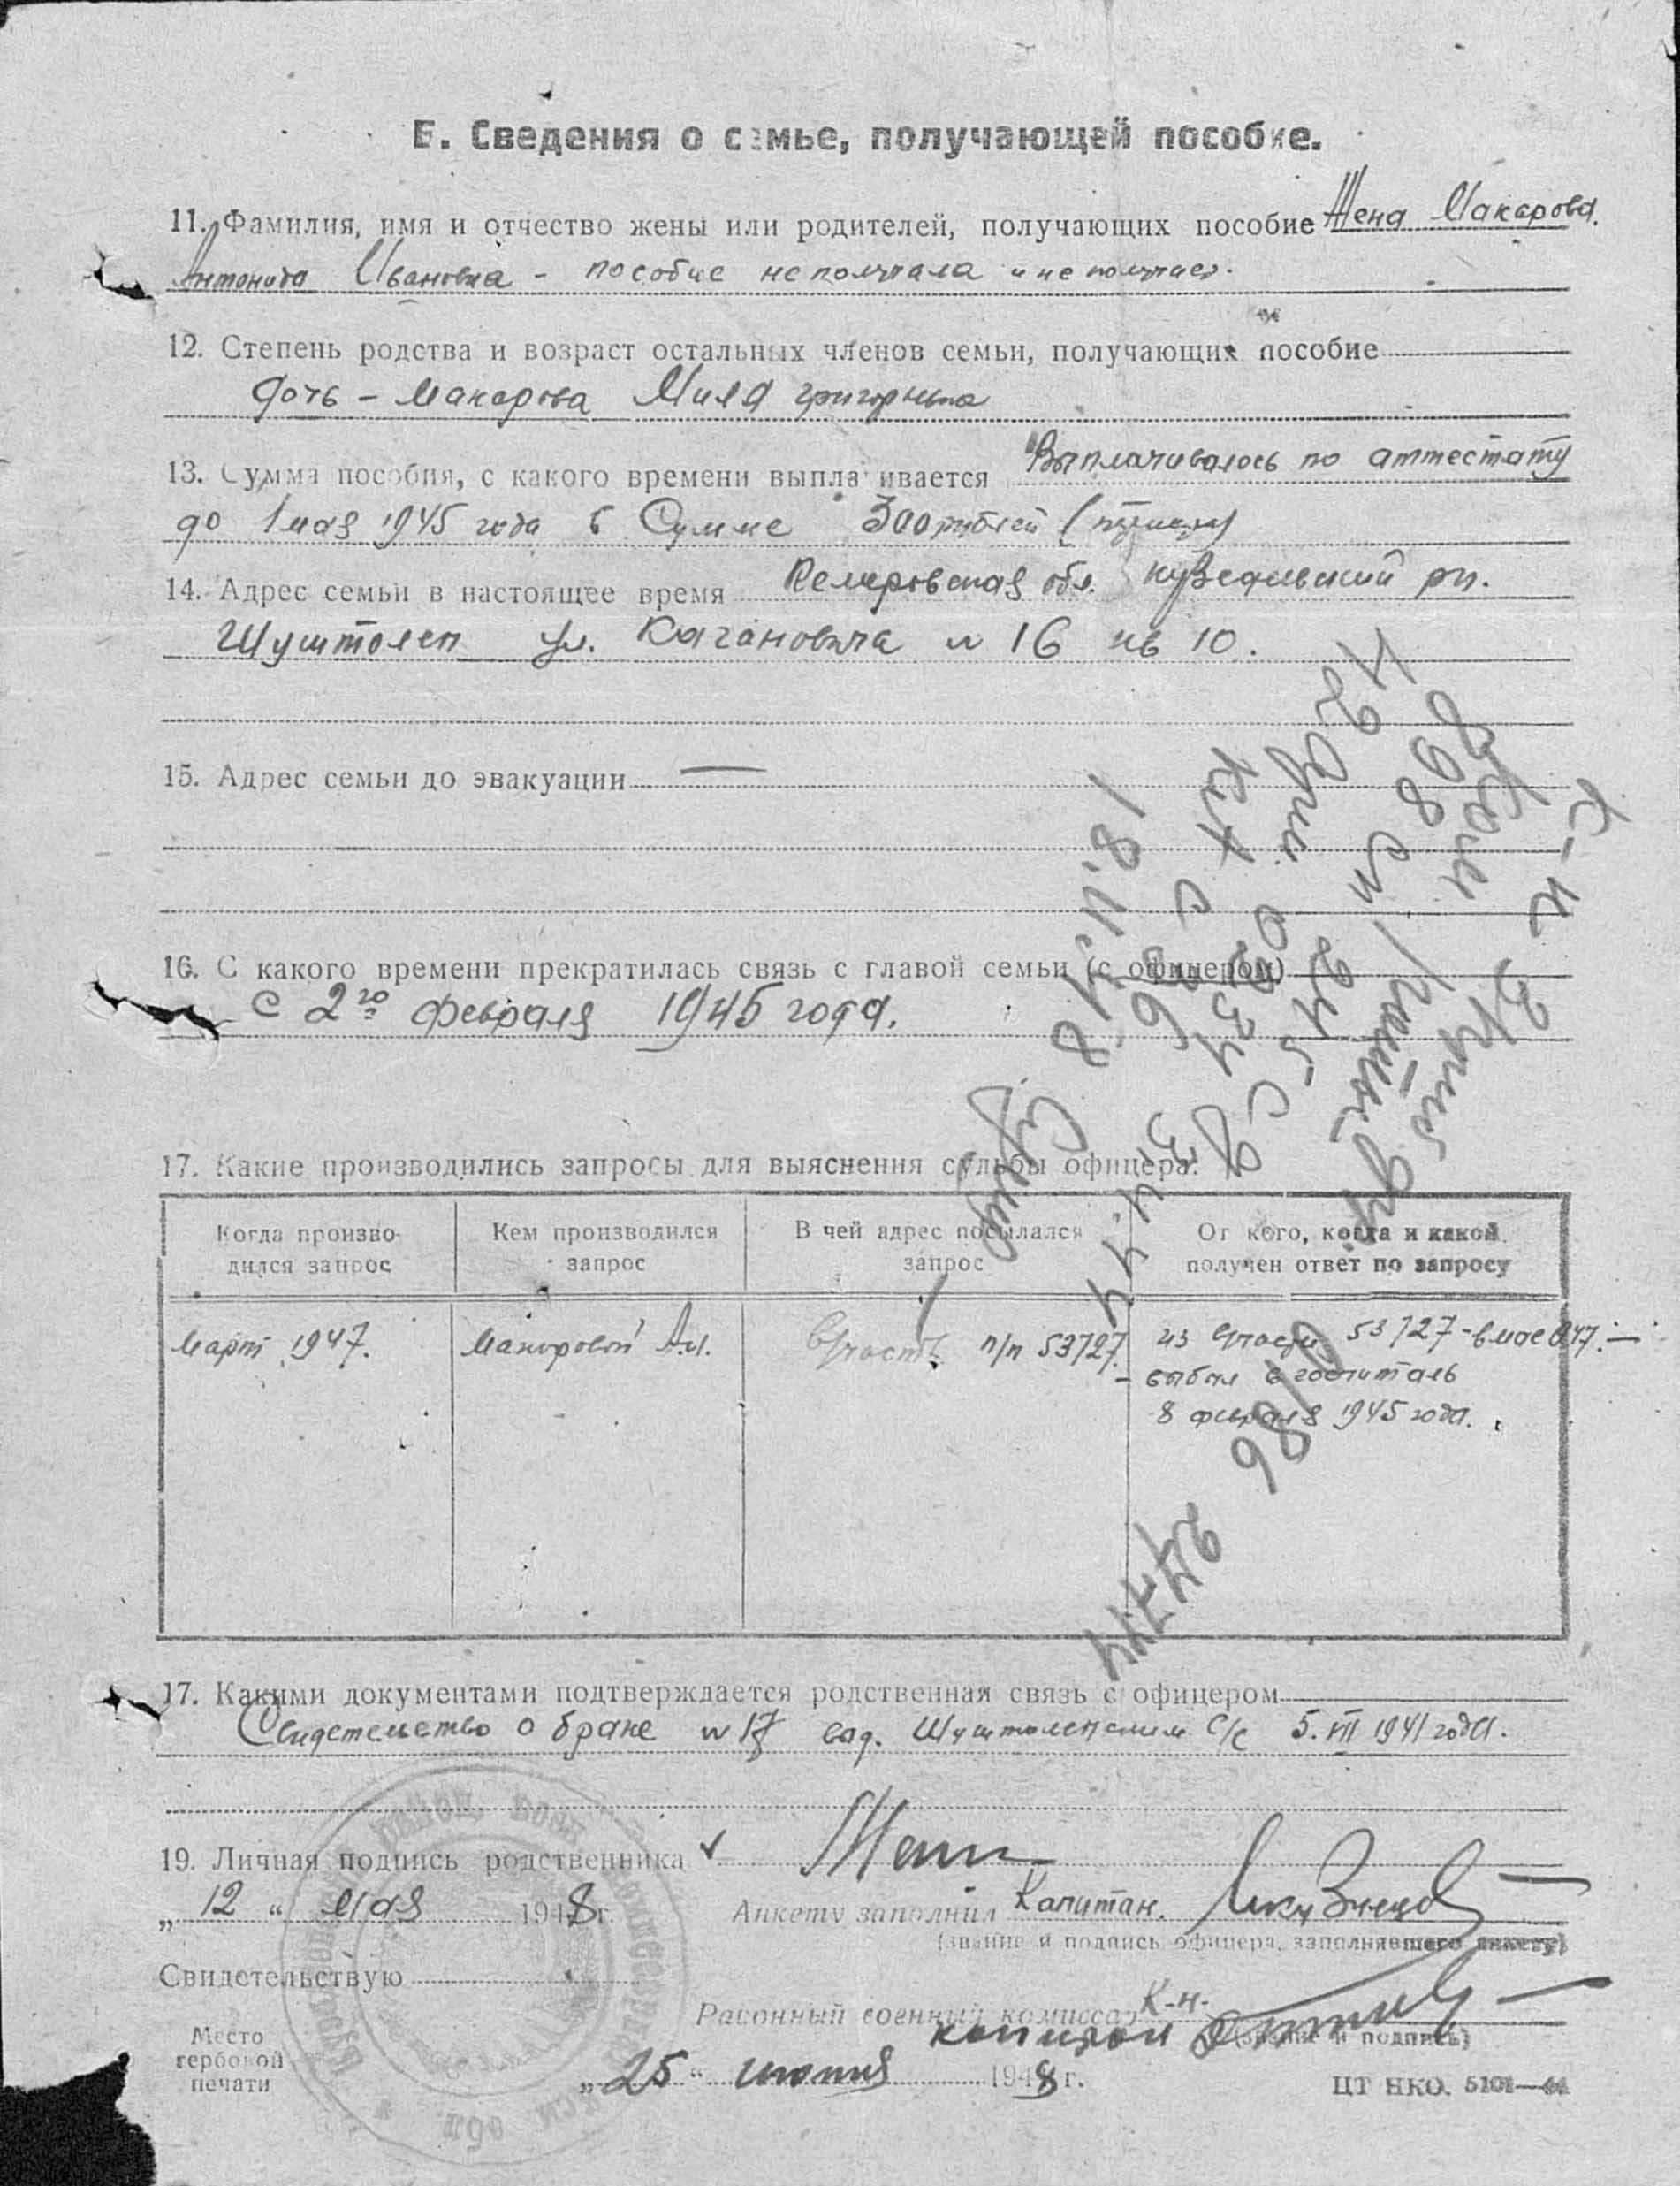 Б. Сведения о семье, получающей пособие.
11. Фамилия, имя и отчество жены или родителей, получающих пособие Жена Макарова
Антонида Ивановна - пособие не получала и не получает.
12. Степень родства и возраст остальных членов семьи, получающих пособие
дочь - Макарова Мила григорьевна
13. Сумма пособия, с какого времени выплачивается Выплачивалось по аттестату
до 1 мая 1945 года в Сумме 300 рублей
14. Адрес семьи в настоящее время Кемеровская обл. кузедеевский рн.
Шуштолеп ул. Кагановича № 16 кв 10.
15. Адрес семьи до эвакуации —
16. С какого времени прекратилась связь с главой семьи (с офицером)
С 2го февраля 1945 года.
17. Какие производились запросы для выяснения судьбы офицера:
Когда производился запрос
Кем производился запрос
В чей адрес посылался запрос
От кого, когда и какой получен ответ по запросу
Март 1947.
Макаровой А.И.
В/часть п/п 53727.
из в/части 53727 - в мае 1947. —
- выбыл в госпиталь
8 февраля 1945 года.
К-К
498 сп
245 сд
18.11.48
3.4.44
0186
17. Какими документами подтверждается родственная связь с офицером
Свидетельство о браке № 17 выд. Шуштолепским С/с 5.VIII 1941 года.
19. Личная подпись родственника
„12“ мая 1948 г.
Анкету заполнил Капитан.
(звание и подпись офицера, заполнявшего анкету)
Свидетельствую
Районный военный комиссар К-н-
капитан
(звание и подпись)
Место
гербовой
печати
„25“ июня 1948 г.
ЦТ НКО. 5101—44